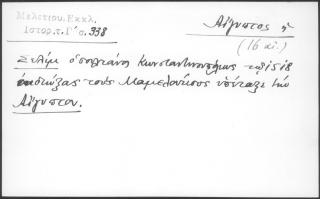 Μελετίου. Εκκλ.
Ιστορ. τ. Γ' σ. 338
Αἴγυπτος ἡ
(16 αἰ.)
Σελὴμ ὁ σουλτάνος Κωνσταντινουπόλεως τῷ 1518
ἐκδιώξας τοὺς Μαμελούκους ὑπέταξε τὴν
Αἴγυπτον.